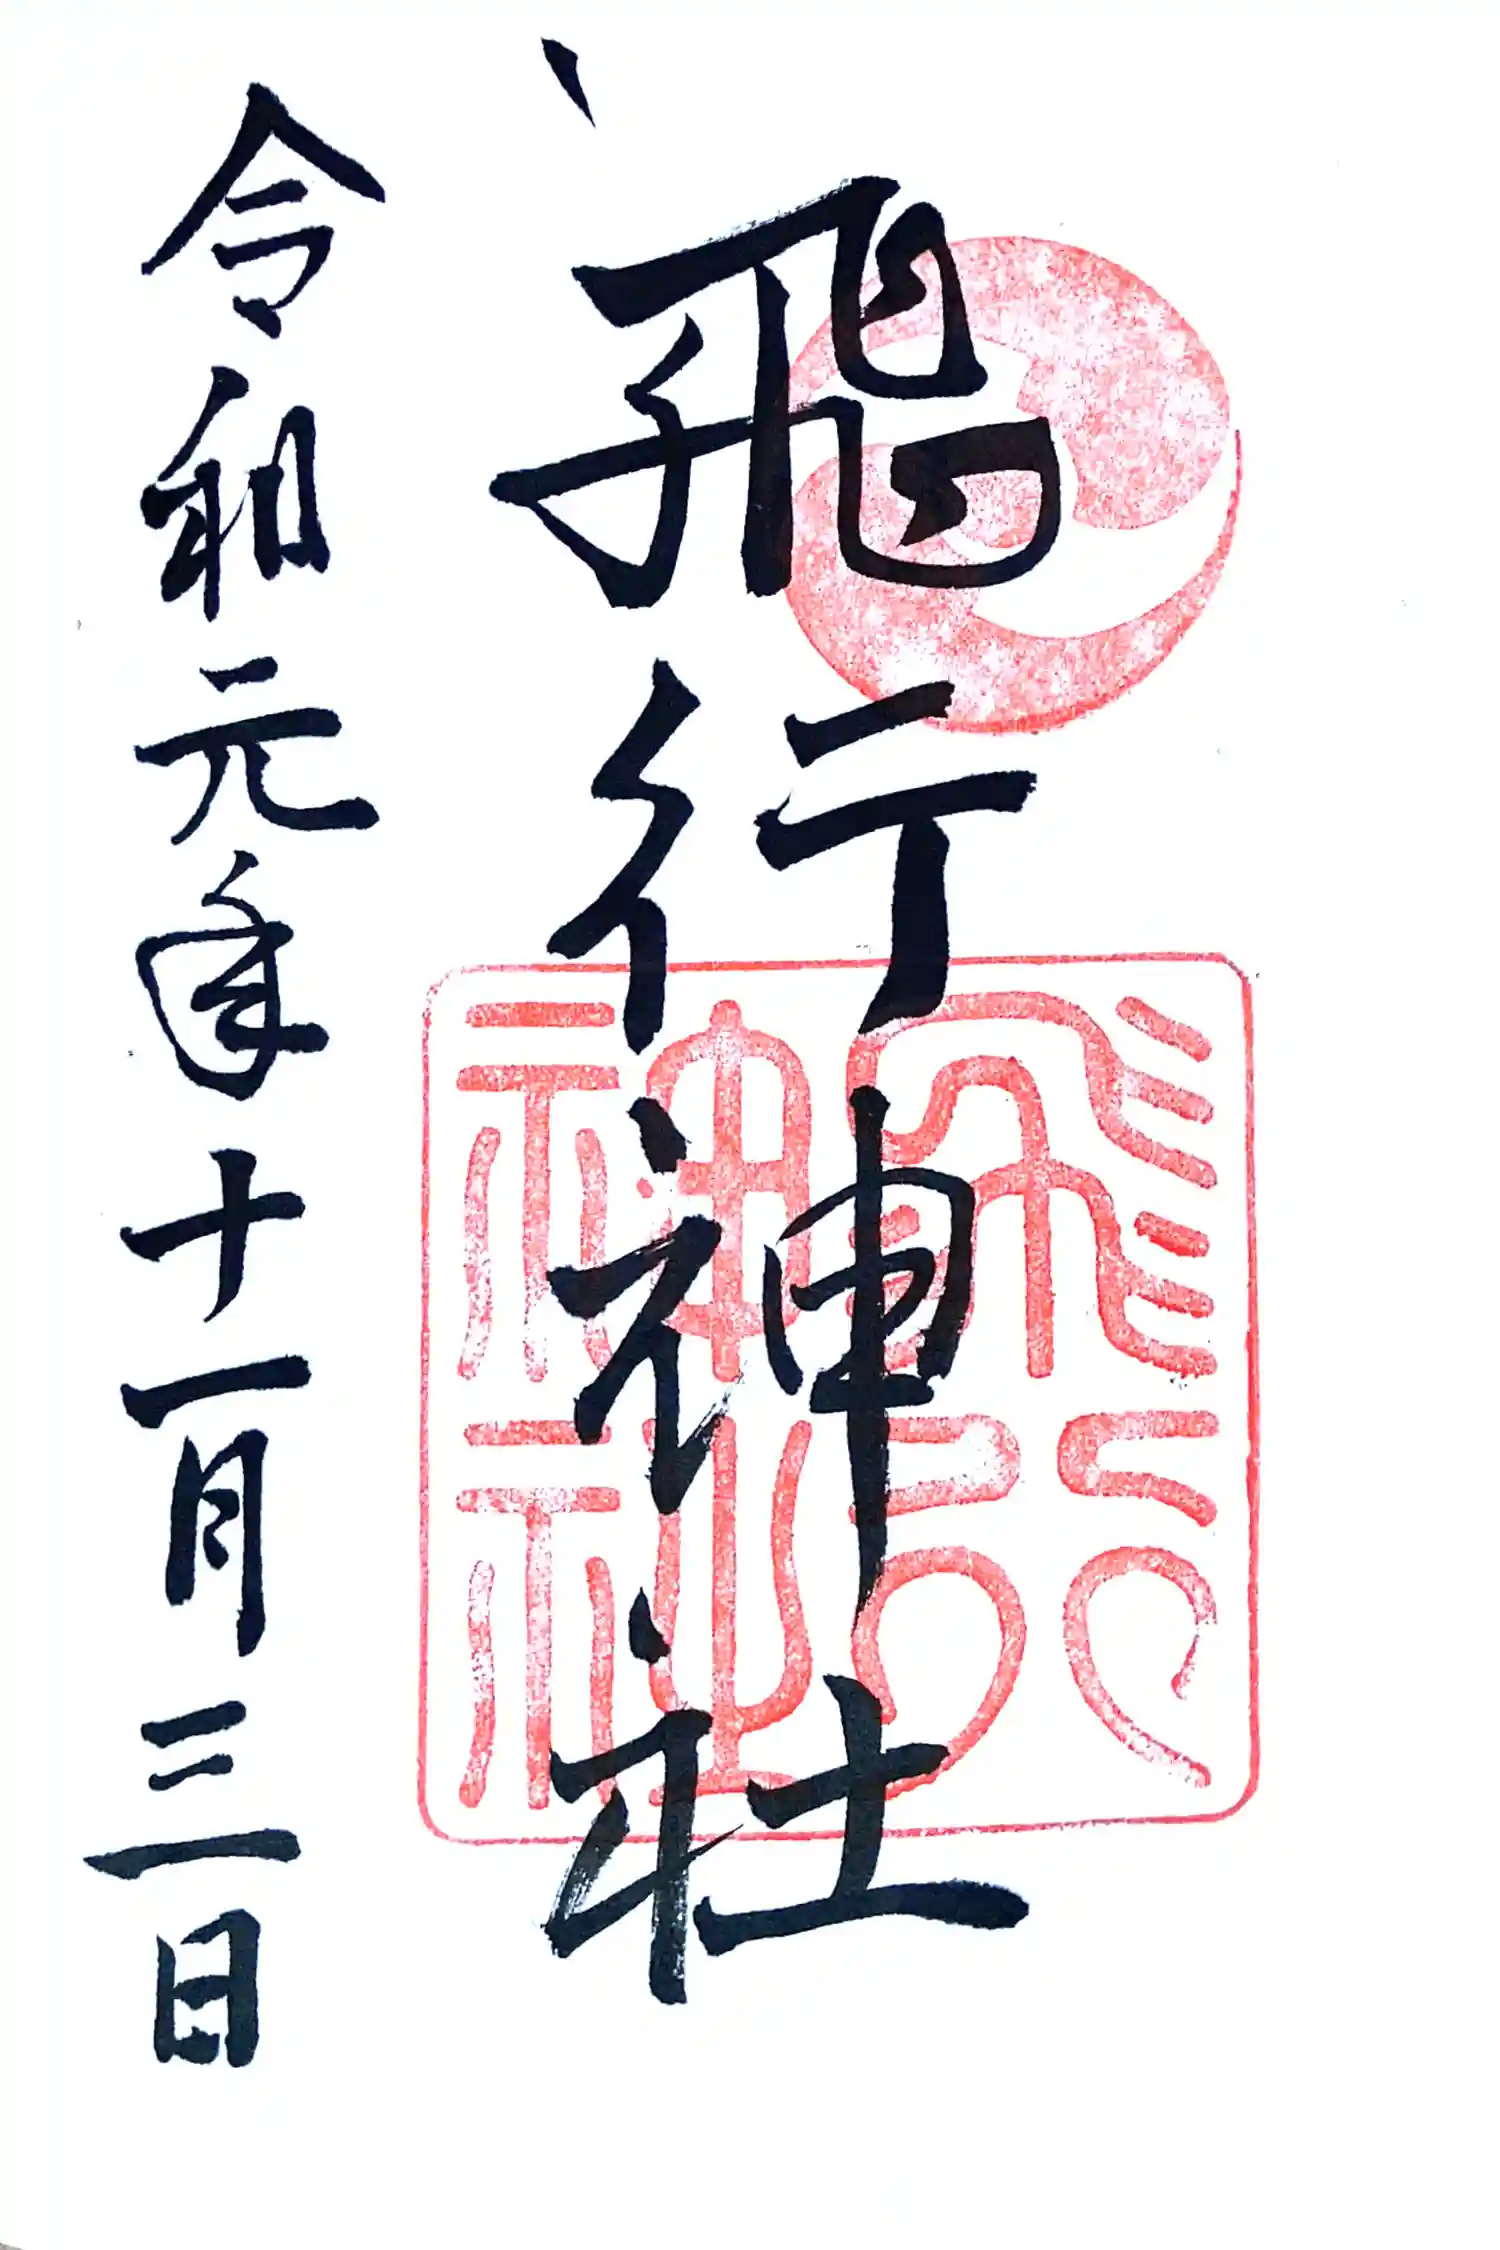 飛行神社
飛行神社
令和元年十一月三日